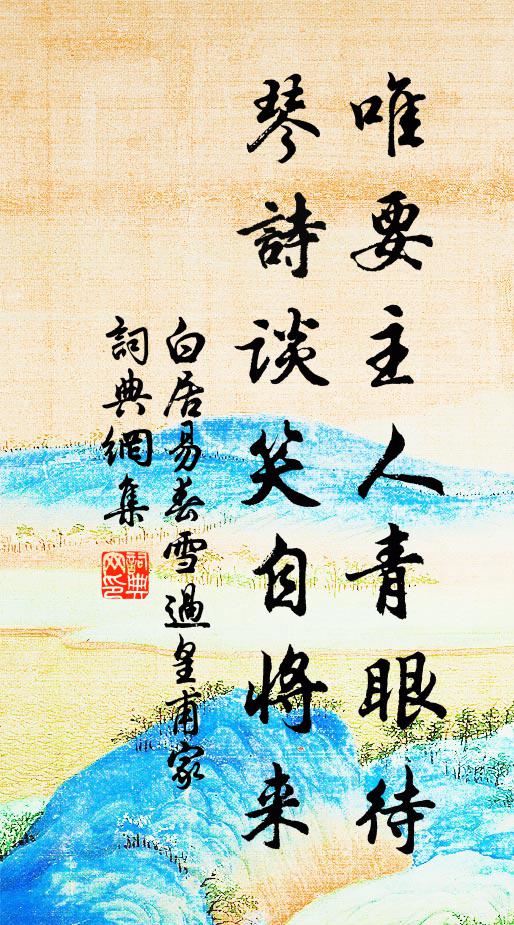 唯要主人青眼待
琴詩谈笑自将来
白居易春雪過皇甫家
詞典網集
詞典網印